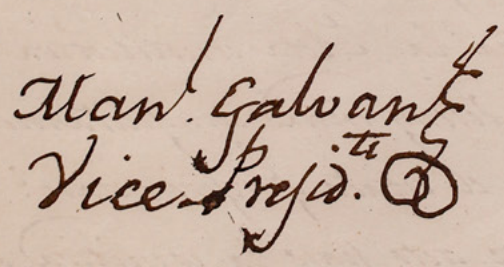 Man.l Galvan
Vice-Presid.te